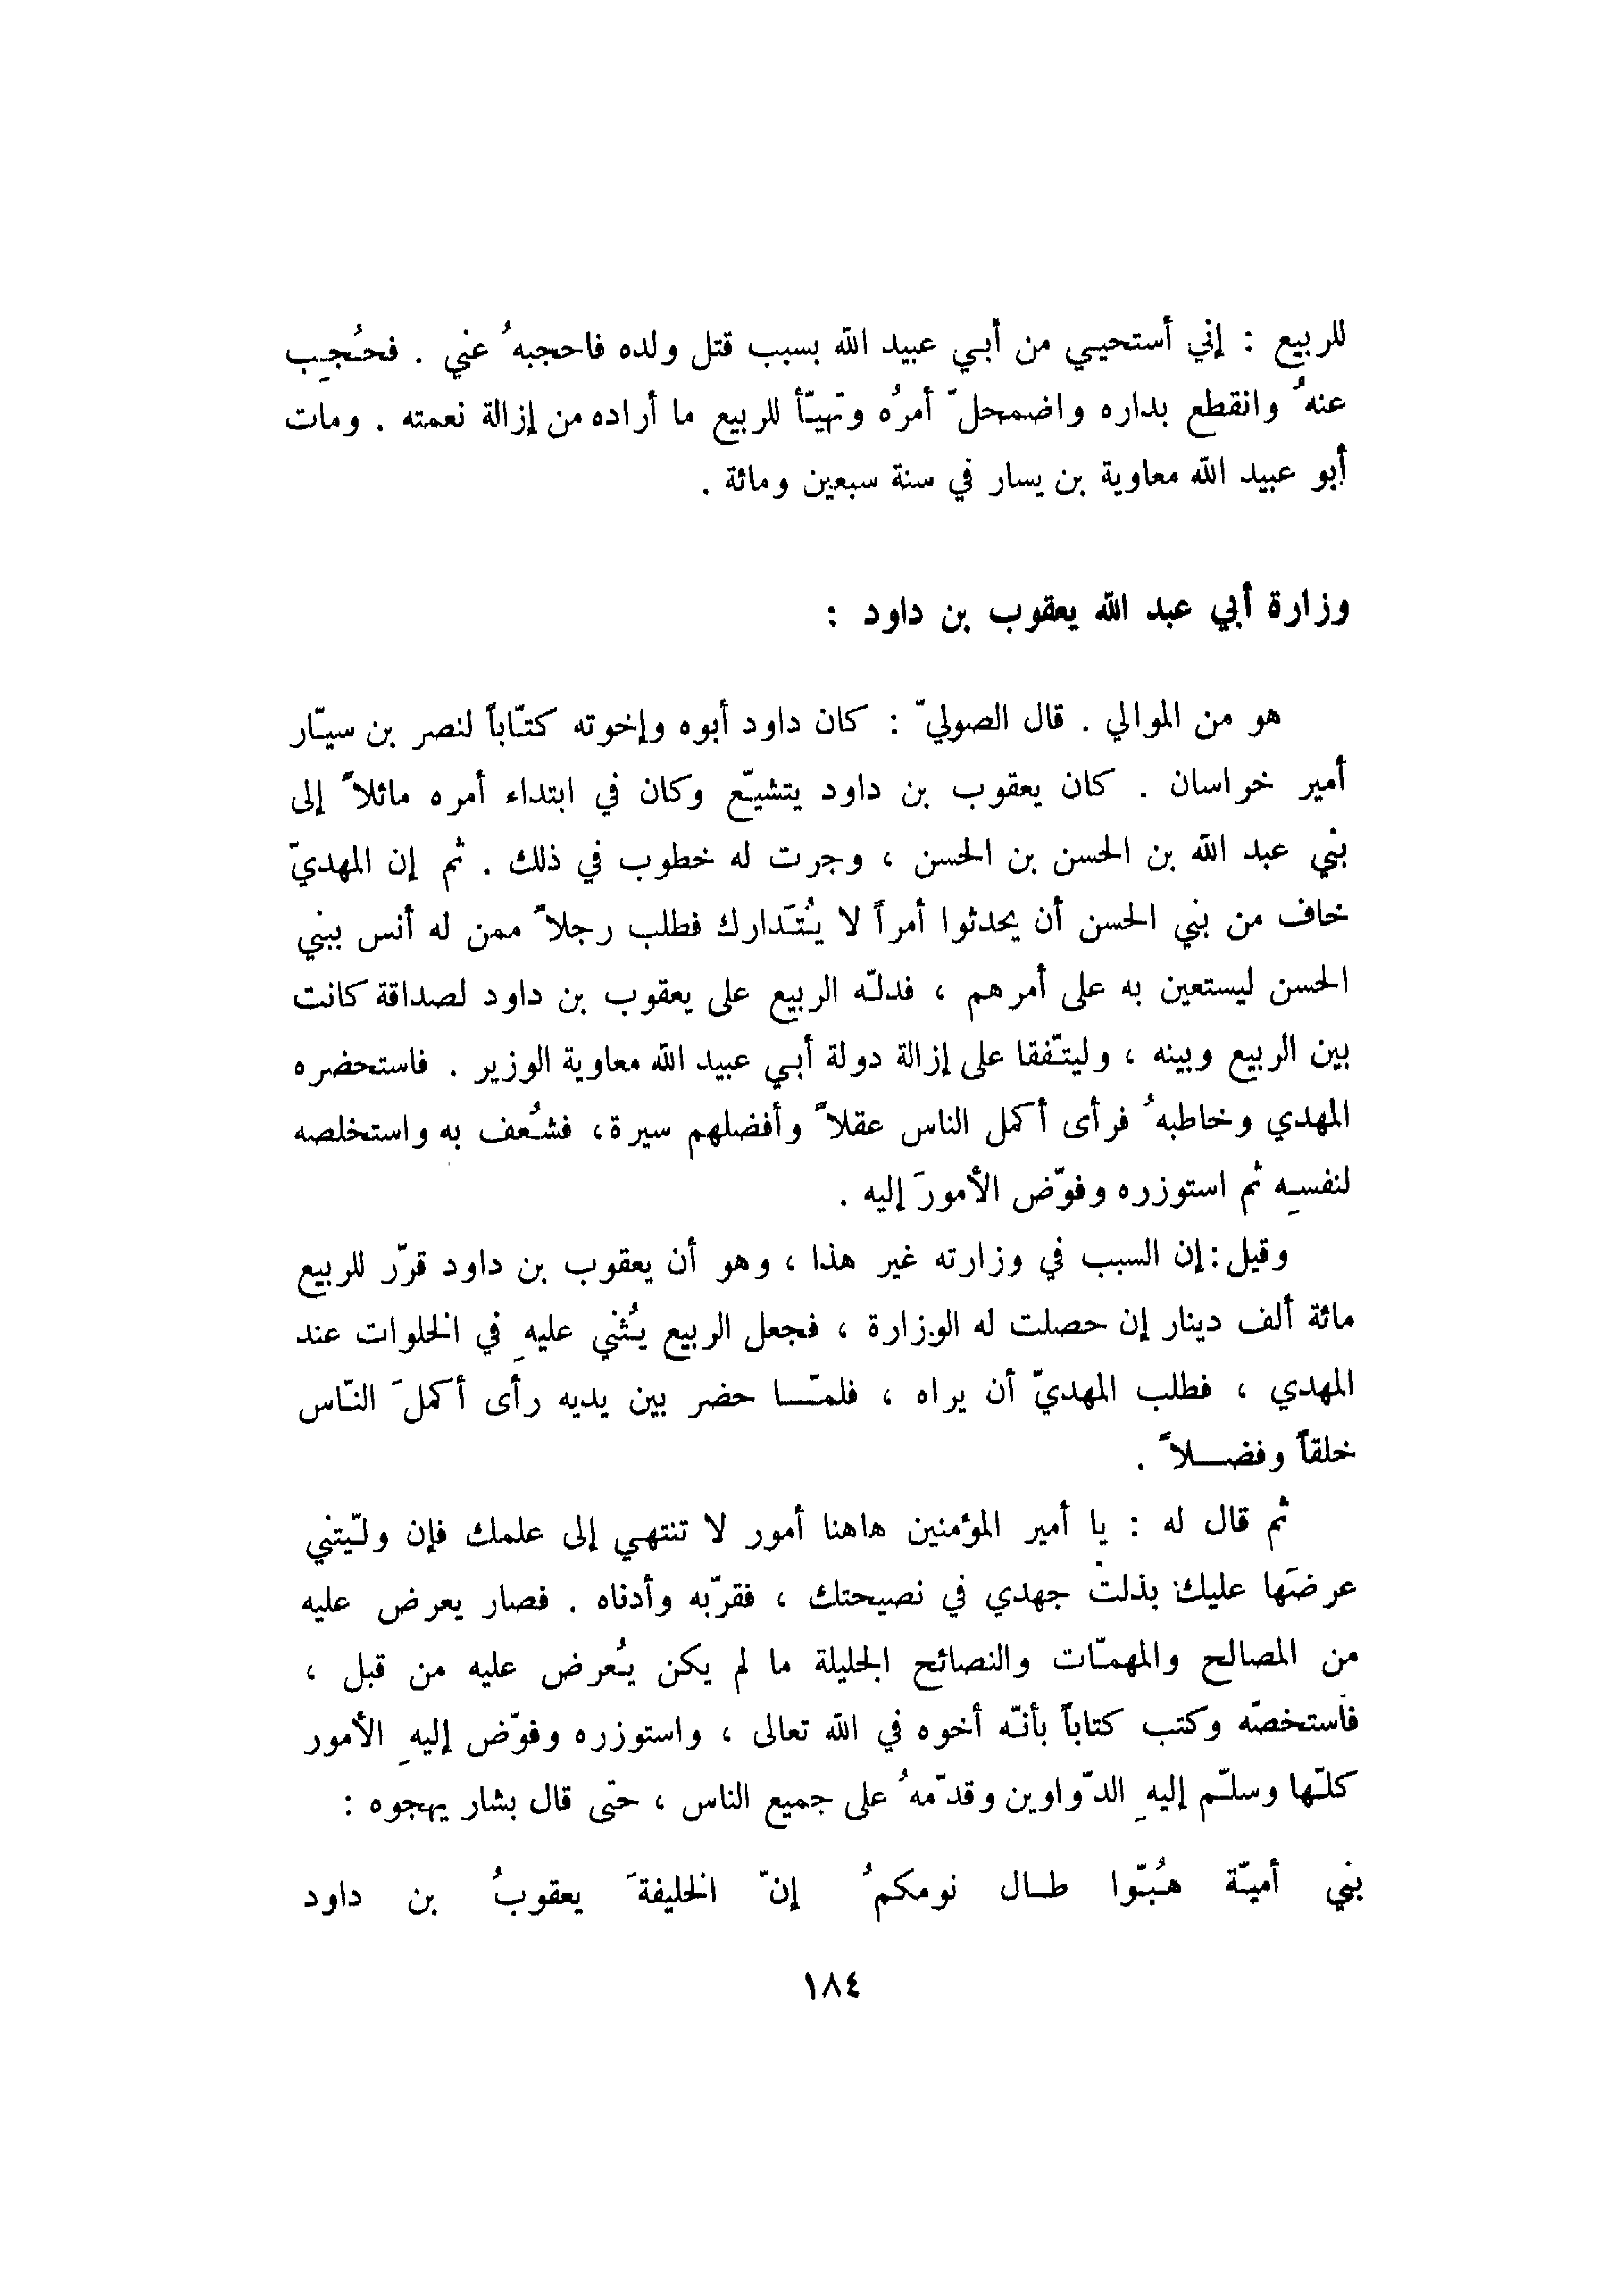 للربيع : إني أستحيي من أبي عبيد الله بسبب قتل ولده فاحجبهُ عني . فحُجِب
عنهُ وانقطع بداره واضمحلّ أمرُه وتهيّأ للربيع ما أراده من إزالة نعمته . ومات
أبو عبيد الله معاوية بن يسار في سنة سبعين ومائة .
وزارة أبي عبد الله يعقوب بن داود :
هو من الموالي . قال الصوليّ : كان داود أبوه وإخوته كتّاباً لنصر بن سيّار
أمير خراسان . كان يعقوب بن داود يتشيّع وكان في ابتداء أمره مائلاً إلى
بني عبد الله بن الحسن بن الحسن ، وجرت له خطوب في ذلك . ثم إن المهديّ
خاف من بني الحسن أن يحدثوا أمراً لا يُتَدارك فطلب رجلاً ممن له أنس ببني
الحسن ليستعين به على أمرهم ، فدلّه الربيع على يعقوب بن داود لصداقة كانت
بين الربيع وبينه ، وليتّفقا على إزالة دولة أبي عبيد الله معاوية الوزير . فاستحضره
المهدي وخاطبهُ فرأى أكمل الناس عقلاً وأفضلهم سيرة، فشُعف به واستخلصه
لنفسِه ثم استوزره وفوّض الأمورَ إليه .
وقيل : إن السبب في وزارته غير هذا ، وهو أن يعقوب بن داود قرّر للربيع
مائة ألف دينار إن حصلت له الوزارة ، فجعل الربيع يُثني عليهِ في الخلوات عند
المهدي ، فطلب المهديّ أن يراه ، فلمّـا حضر بين يديه رأى أكملَ النّاس
خلقاً وفضـلاً .
ثم قال له : يا أمير المؤمنين هاهنا أمور لا تنتهي إلى علمك فإن ولّيتني
عرضَها عليك بذلتُ جهدي في نصيحتك ، فقرّبه وأدناه . فصار يعرض عليه
من المصالح والمهمّات والنصائح الجليلة ما لم يكن يُعرض عليه من قبل ،
فاستخصّه وكتب كتاباً بأنّه أخوه في الله تعالى ، واستوزره وفوّض إليهِ الأمور
كلّها وسلّم إليهِ الدّواوين وقدّمهُ على جميع الناس ، حتّى قال بشار يهجوه :
بني أميّة هُبّوا طـال نومكمُ إنّ الخليفةَ يعقوبُ بن داود
١٨٤